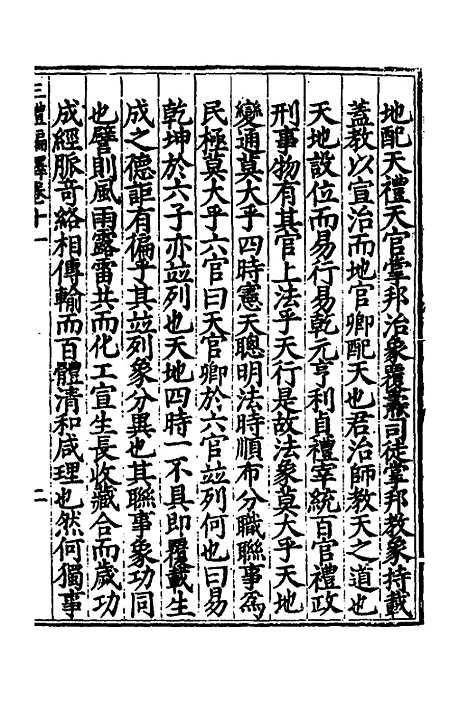 地配天禮天官掌邦治象覆燾司徒掌邦教象持載
蓋教以宣治而地官卿配天也君治師教天之道也
天地設位而易行易乾元亨利貞禮宰統百官禮政
刑事物有其官上法乎天行是故法象莫大乎天地
變通莫大乎四時憲天聰明法時順布分職聯事爲
民極莫大乎六官曰天官卿於六官竝列何也曰易
乾坤於六子亦竝列也天地四時一不具即覆載生
成之德詎有徧乎其竝列象分異也其聯事象功同
也譬則風雨露雷共而化工宣生長收藏合而歲功
成經脈竒絡相傳輸而百體清和咸理也然何獨事
三禮編繹卷十一
二